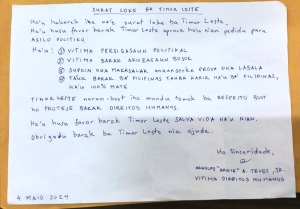 SURAT LOKE BA TIMOR LESTE
Ha'u hakerek iha ne'e surat loke ba Timor Leste.
Ha'u husu favor barak Timor Leste aprova hois nian pedidu para
ASILO POLITIKO
Ha'u:
① VITIMA PERSIGASAUN POLITIKAL
② VITIMA BARAK AKUZASAUN BOSOK
③ SUPEIN SUA MAKSALAK MAIBE SEIKA PROVA OHA LASALA
④ TAUK BARAK FILIPINAS TANBA KARIK HA'U BA' FILIPINAS,
HA'U 100% MATE
TIMOR LESTE naran-boot iha mundu tomak ba RESPEITU BOOT
NO PROTEJE BARAK DIREITOS HUMANOS.
Ha'u husu favor barak Timor Leste SALVA VIDA HA'U NIAN.
Obrigadu barak ba Timor Leste nia ajuda.
Ho Sinceridade,
"ARNIE" A. TEVES, JR.
VITIMA DIREITOS HUMANOS
9 MAIO 2024